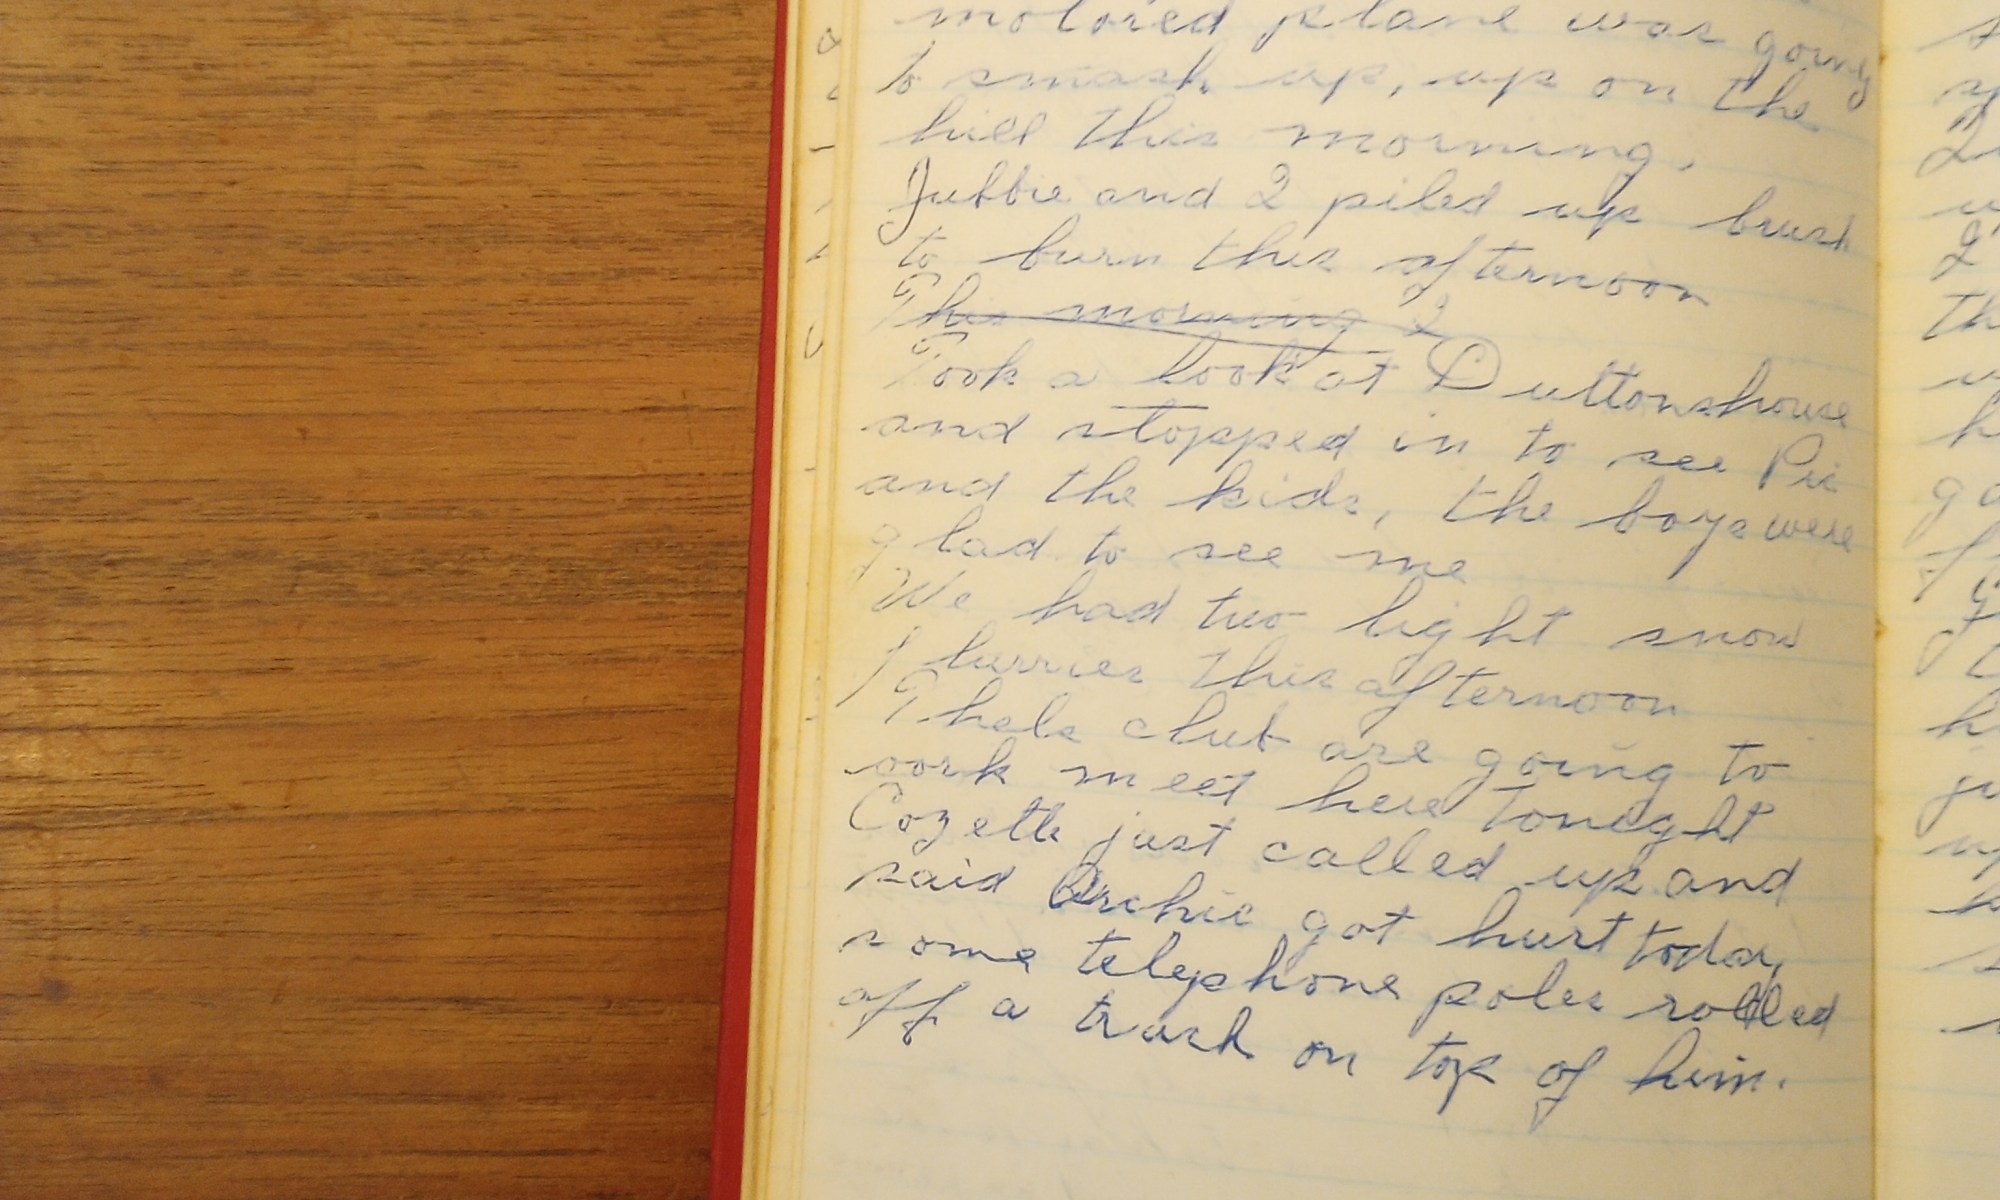 motored plane was going
to smash up, up on the
hill this morning.
Jubbie and I piled up brush
to burn this afternoon
This morning I
Took a look at Duttons house
and stopped in to see Pie
and the kids, the boys were
glad to see me
We had two light snow
flurries this afternoon
Thels club are going to
work meet here tonight
Cozette just called up and
said Archie got hurt today,
some telephone poles rolled
off a truck on top of him.